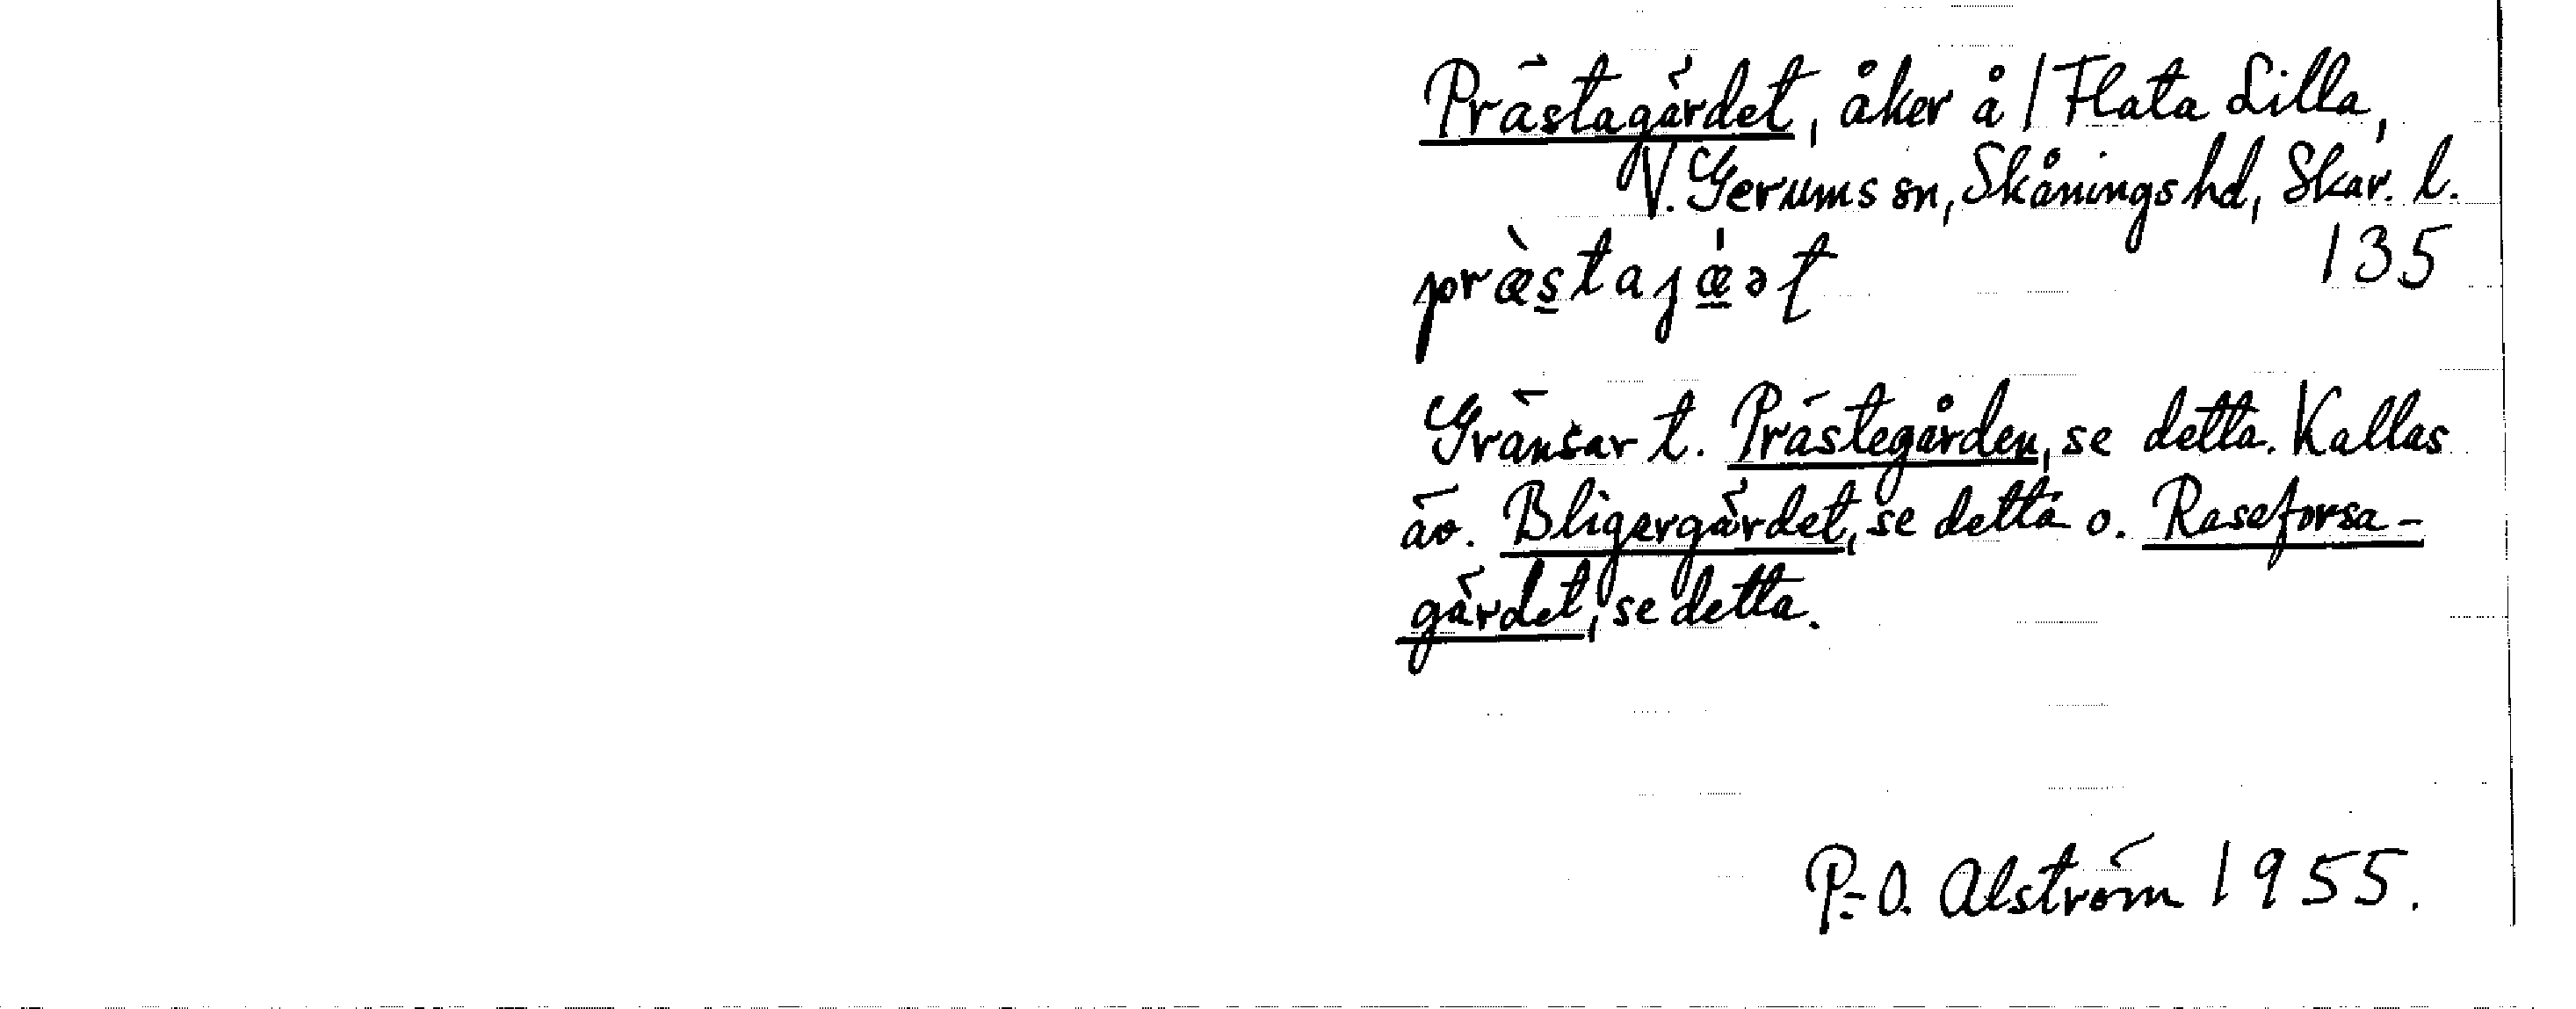 Prästagärdet, åker å 1 Flata Lilla,
V. Gerums sn, Skånings hd, Skar. l.
135
præ̀stajǽət
Gränsar t. Prästegården, se detta. Kallas
äv. Bligergärdet, se detta o. Raseforsa-
gärdet, se detta.
P.-O. Alström 1955.